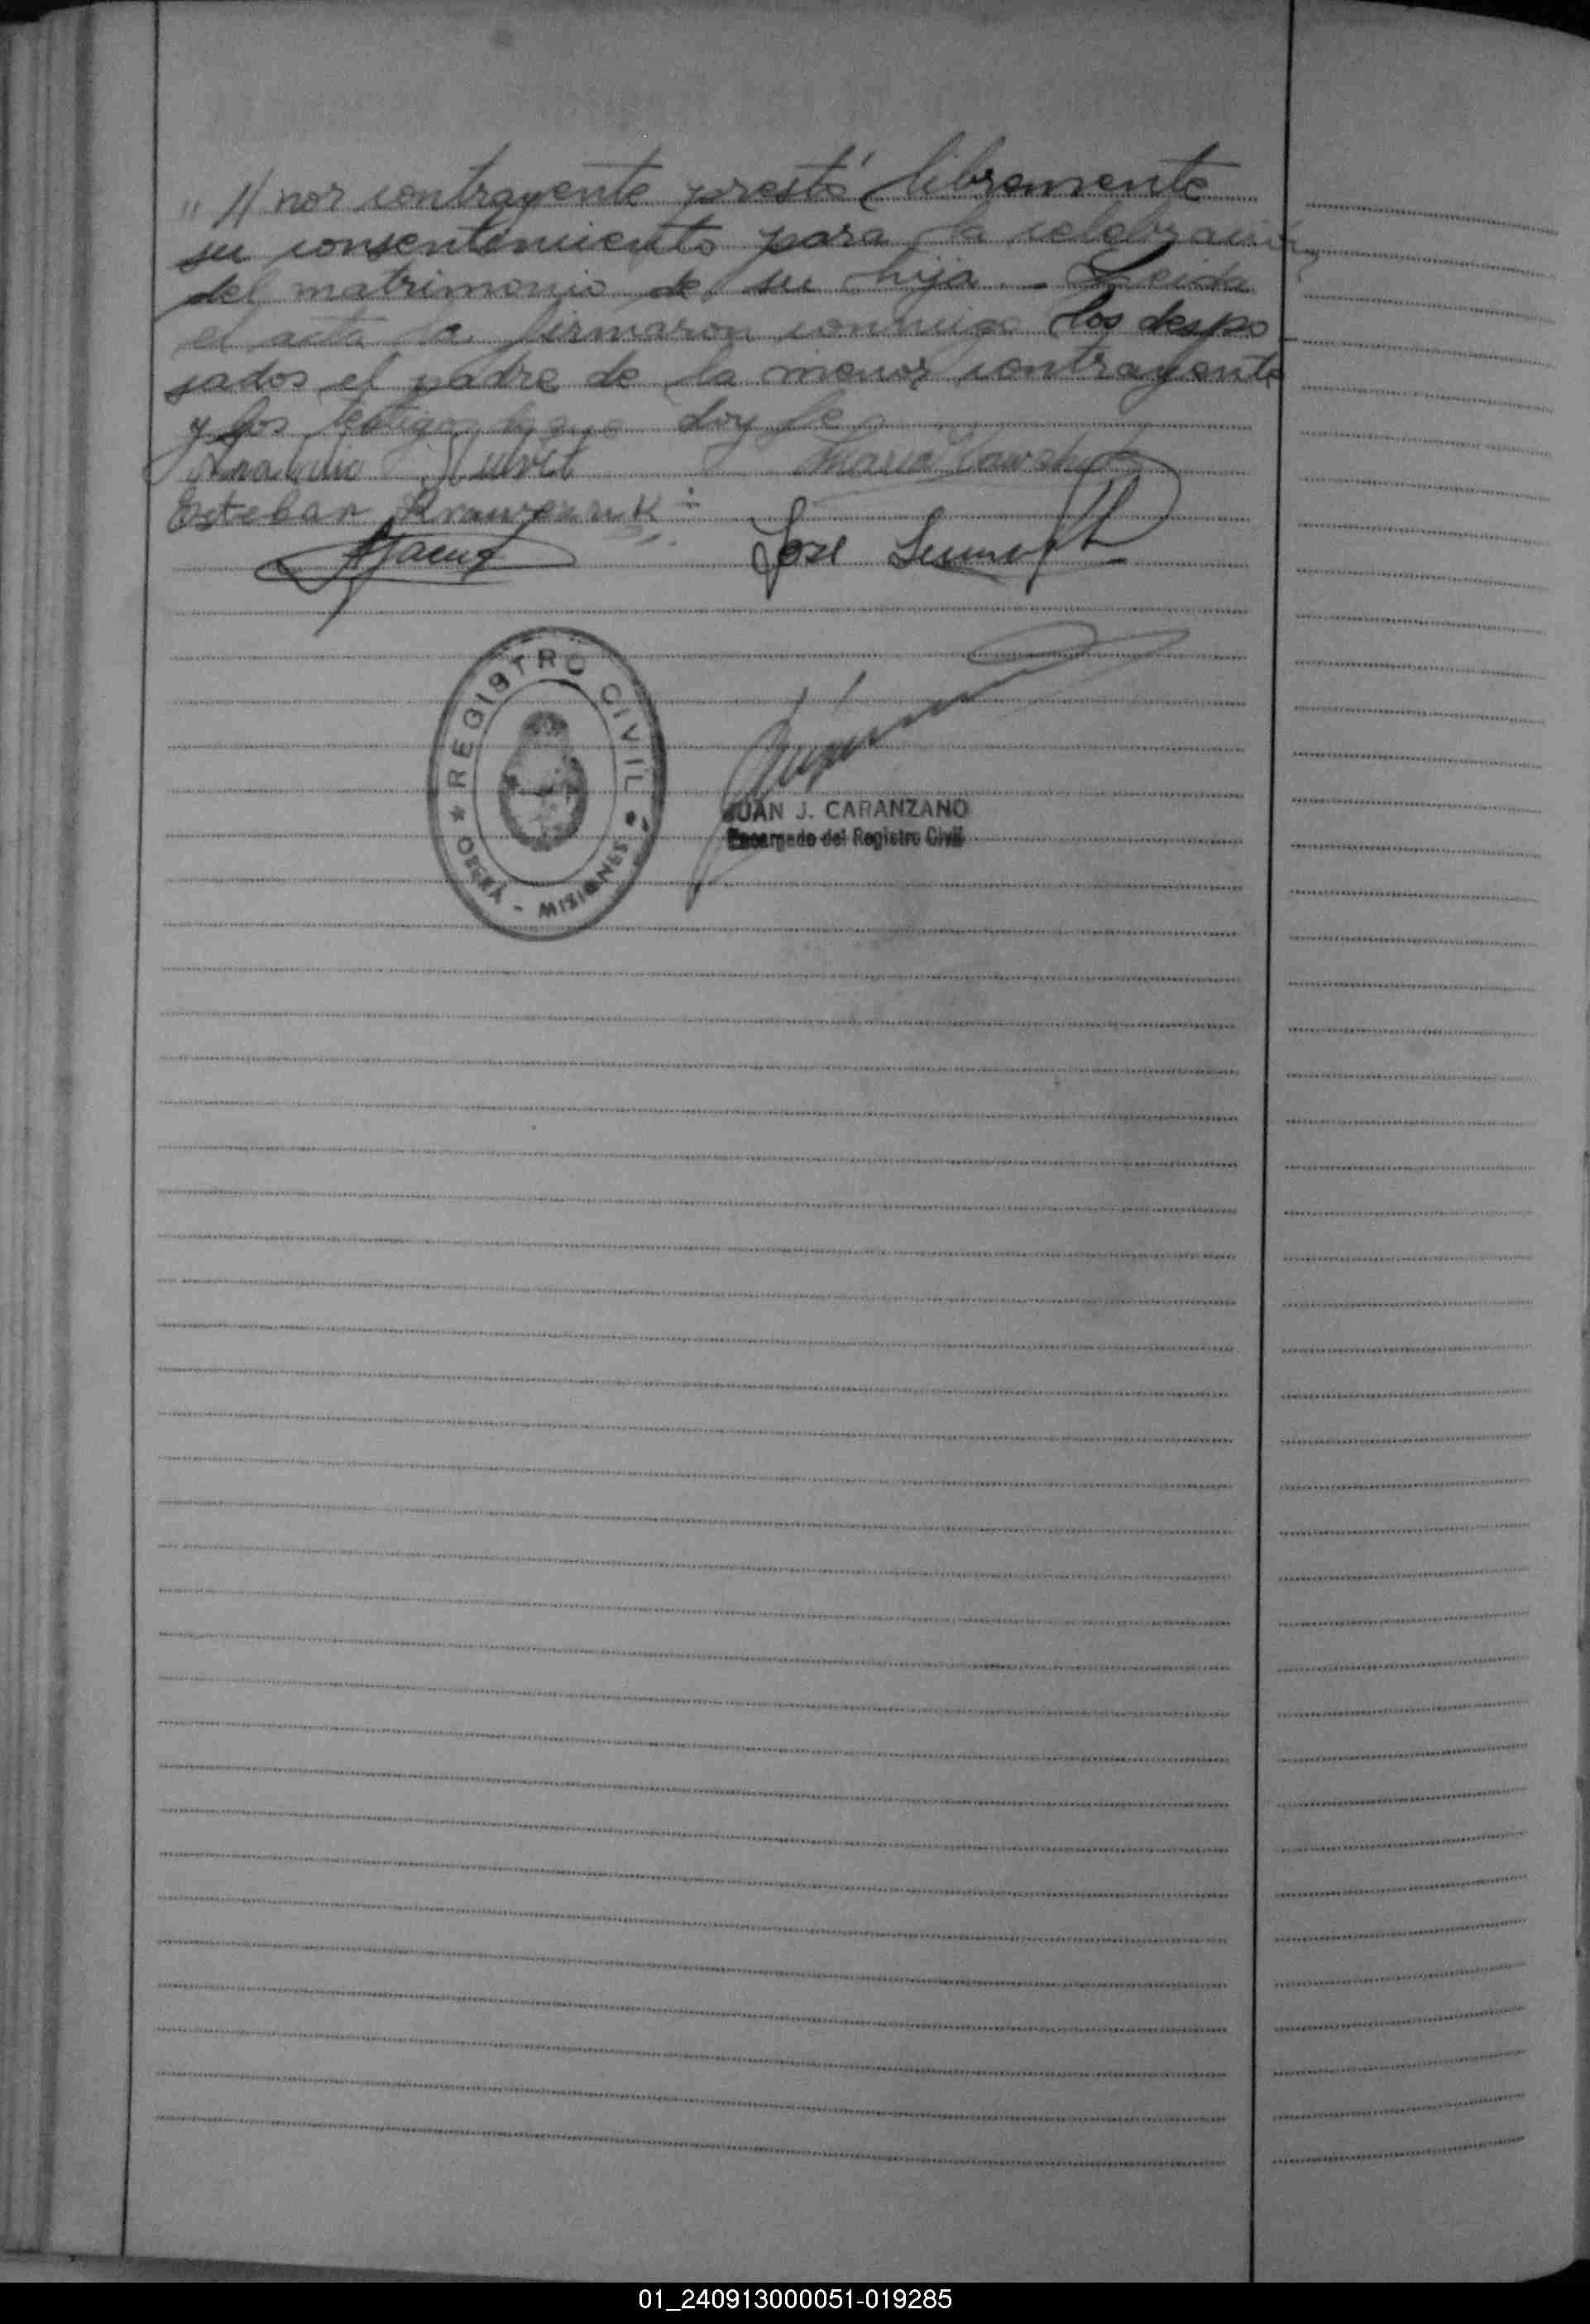 " // nor contrayente prestó libremente
su consentimiento para la celebración
del matrimonio de su hija. - Leida
el acta la firmaron conmigo los despo
sados el padre de la menor contrayente
y los testigos de que doy fe
María
Esteban Krawczuk
José
REGISTRO CIVIL
OBERÁ - MISIONES
JUAN J. CARANZANO
Encargado del Registro Civil
01_240913000051-019285